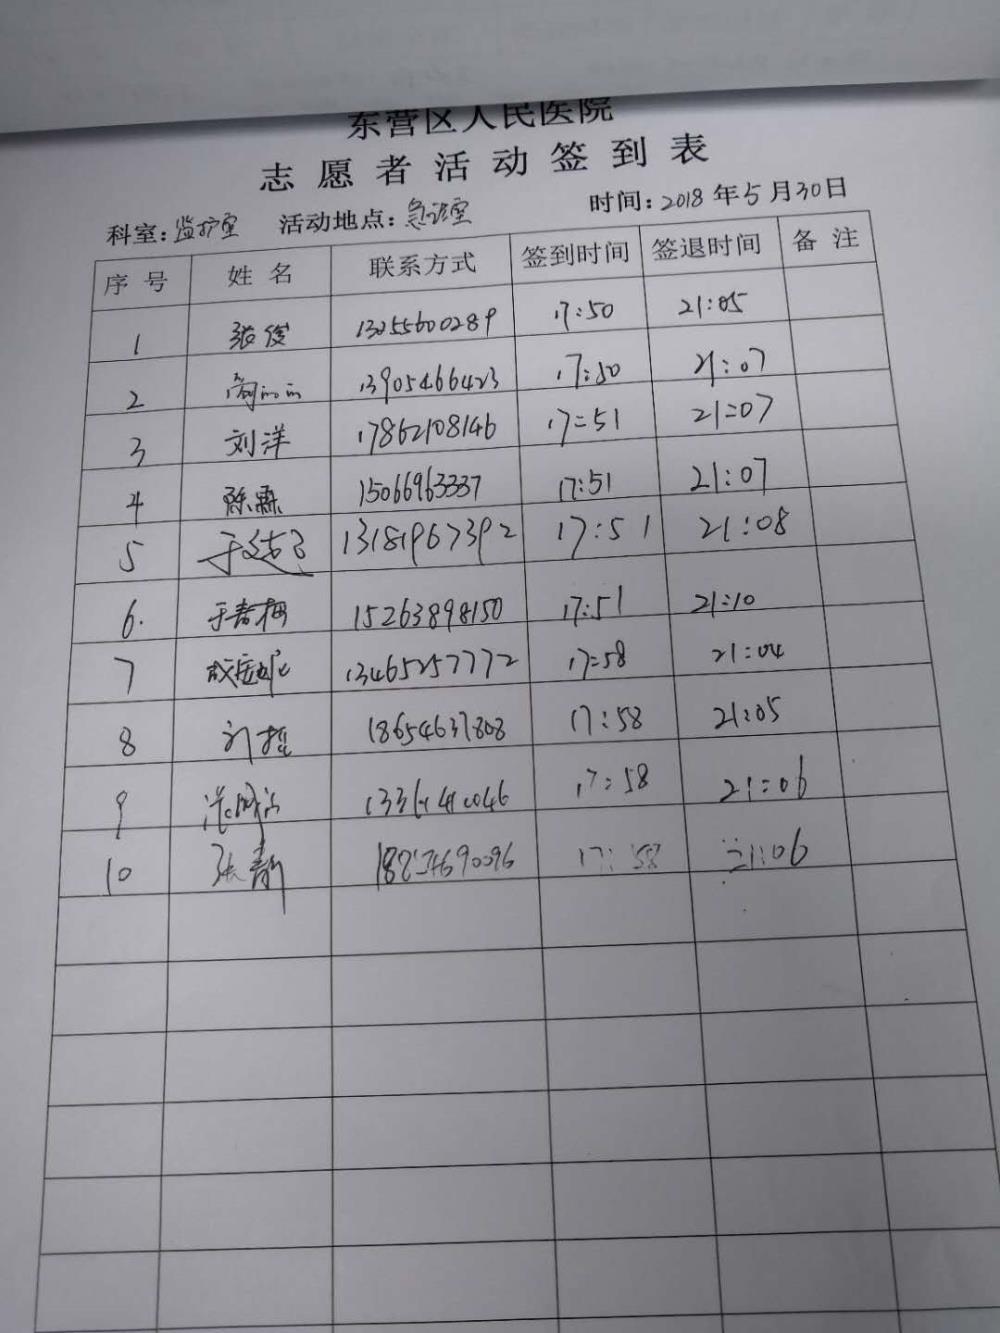 东营区人民医院
志愿者活动签到表
科室:监护室 活动地点:急诊室 时间:2018年5月30日
序号 姓名 联系方式 签到时间 签退时间 备注
1 张俊 13255600289 17:50 21:05
2 13905466423 17:50 21:07
3 刘洋 17862108146 17:51 21:07
4 陈霖 15066963337 17:51 21:07
5 13181967392 17:51 21:08
6. 于春梅 15263898150 17:51 21:10
7 13465257772 17:58 21:04
8 18654637808 17:58 21:05
9 17:58 21:06
10 张静 17:58 21:06